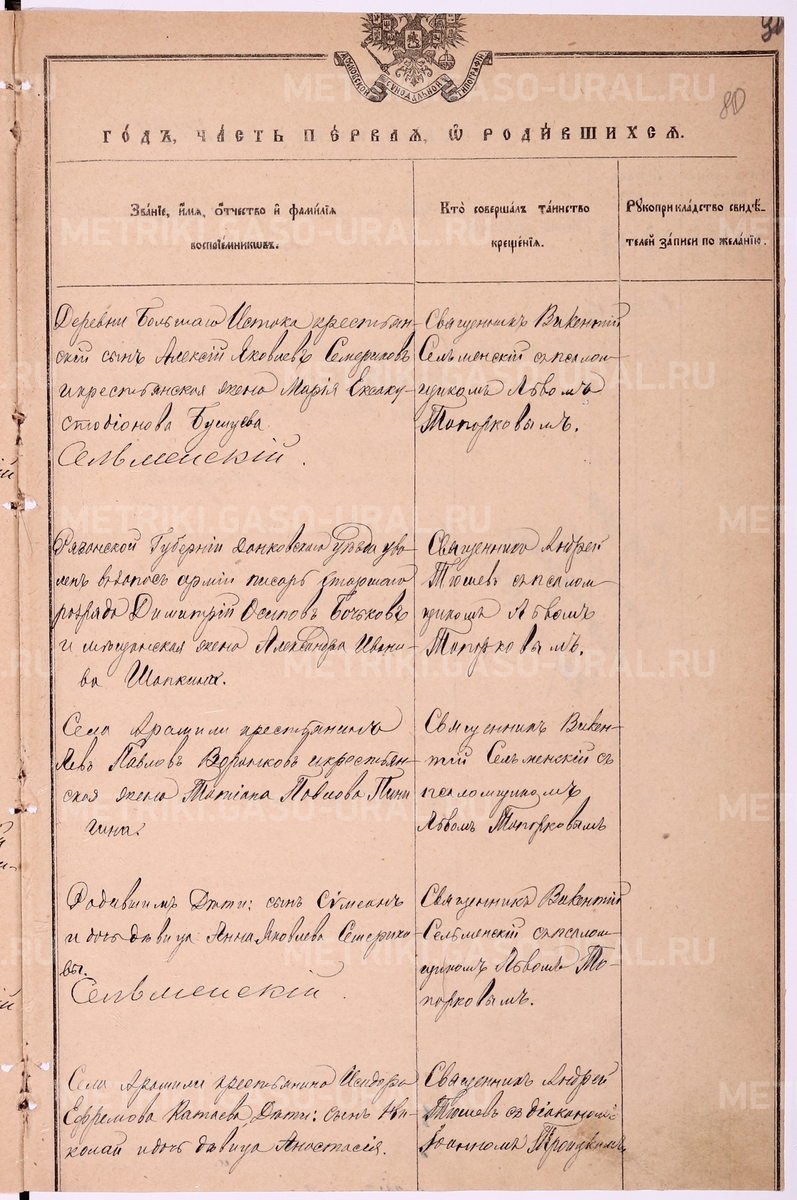 МОСКОВСКОЙ СѴНОДАЛЬНОЙ ТИПОГРАФІИ
80
ГОДЪ, ЧАСТЬ ПЕРВАЯ, Ѡ РОДИВШИХСЯ.
Званіе, имя, отчество и фамилія
воспріемниковъ.
Кто совершалъ таинство
крещенія.
Рукоприкладство свидѣ-
телей записи по желанію.
Деревни Большаго Истока крестьян-
скій сынъ Алексій Яковлевъ Семериковъ
и крестьянская жена Марія Ексаку-
стодіонова Бушуева
Сельменскій.
Священникъ Викентій
Сельменскій съ псалом-
щикомъ Львомъ
Топорковымъ.
Рязанской Губерніи Данковскаго уѣзда уво-
ленъ въ запасъ арміи писарь старшаго
розряда Димитрій Осиповъ Бочковъ
и мѣщанская жена Александра Ивано-
ва Шапкина.
Священникъ Андрей
Тюшевъ съ псалом-
щикомъ Львомъ
Топорковымъ.
Села Арамили крестьянинъ
Левъ Павловъ Воронковъ и крестьян-
ская жена Татіана Павлова Пини-
гина.
Священникъ Викен-
тій Сельменскій съ
псаломщикомъ
Львомъ Топорковымъ
Родившимъ Дѣти: сынъ Сѵмеонъ
и дочь дѣвица Анна Яковлева Семерико-
вы.
Сельменскій.
Священникъ Викентій
Сельменскій съ псалом-
щикомъ Львомъ То-
порковымъ.
Села Арамили крестьянина Исидора
Ефремова Катаева Дѣти: сынъ Ни-
колай и дочь дѣвица Анастасія.
Священникъ Андрей
Тюшевъ съ діакономъ
Іоанномъ Троицкимъ
METRIKI.GASO-URAL.RU